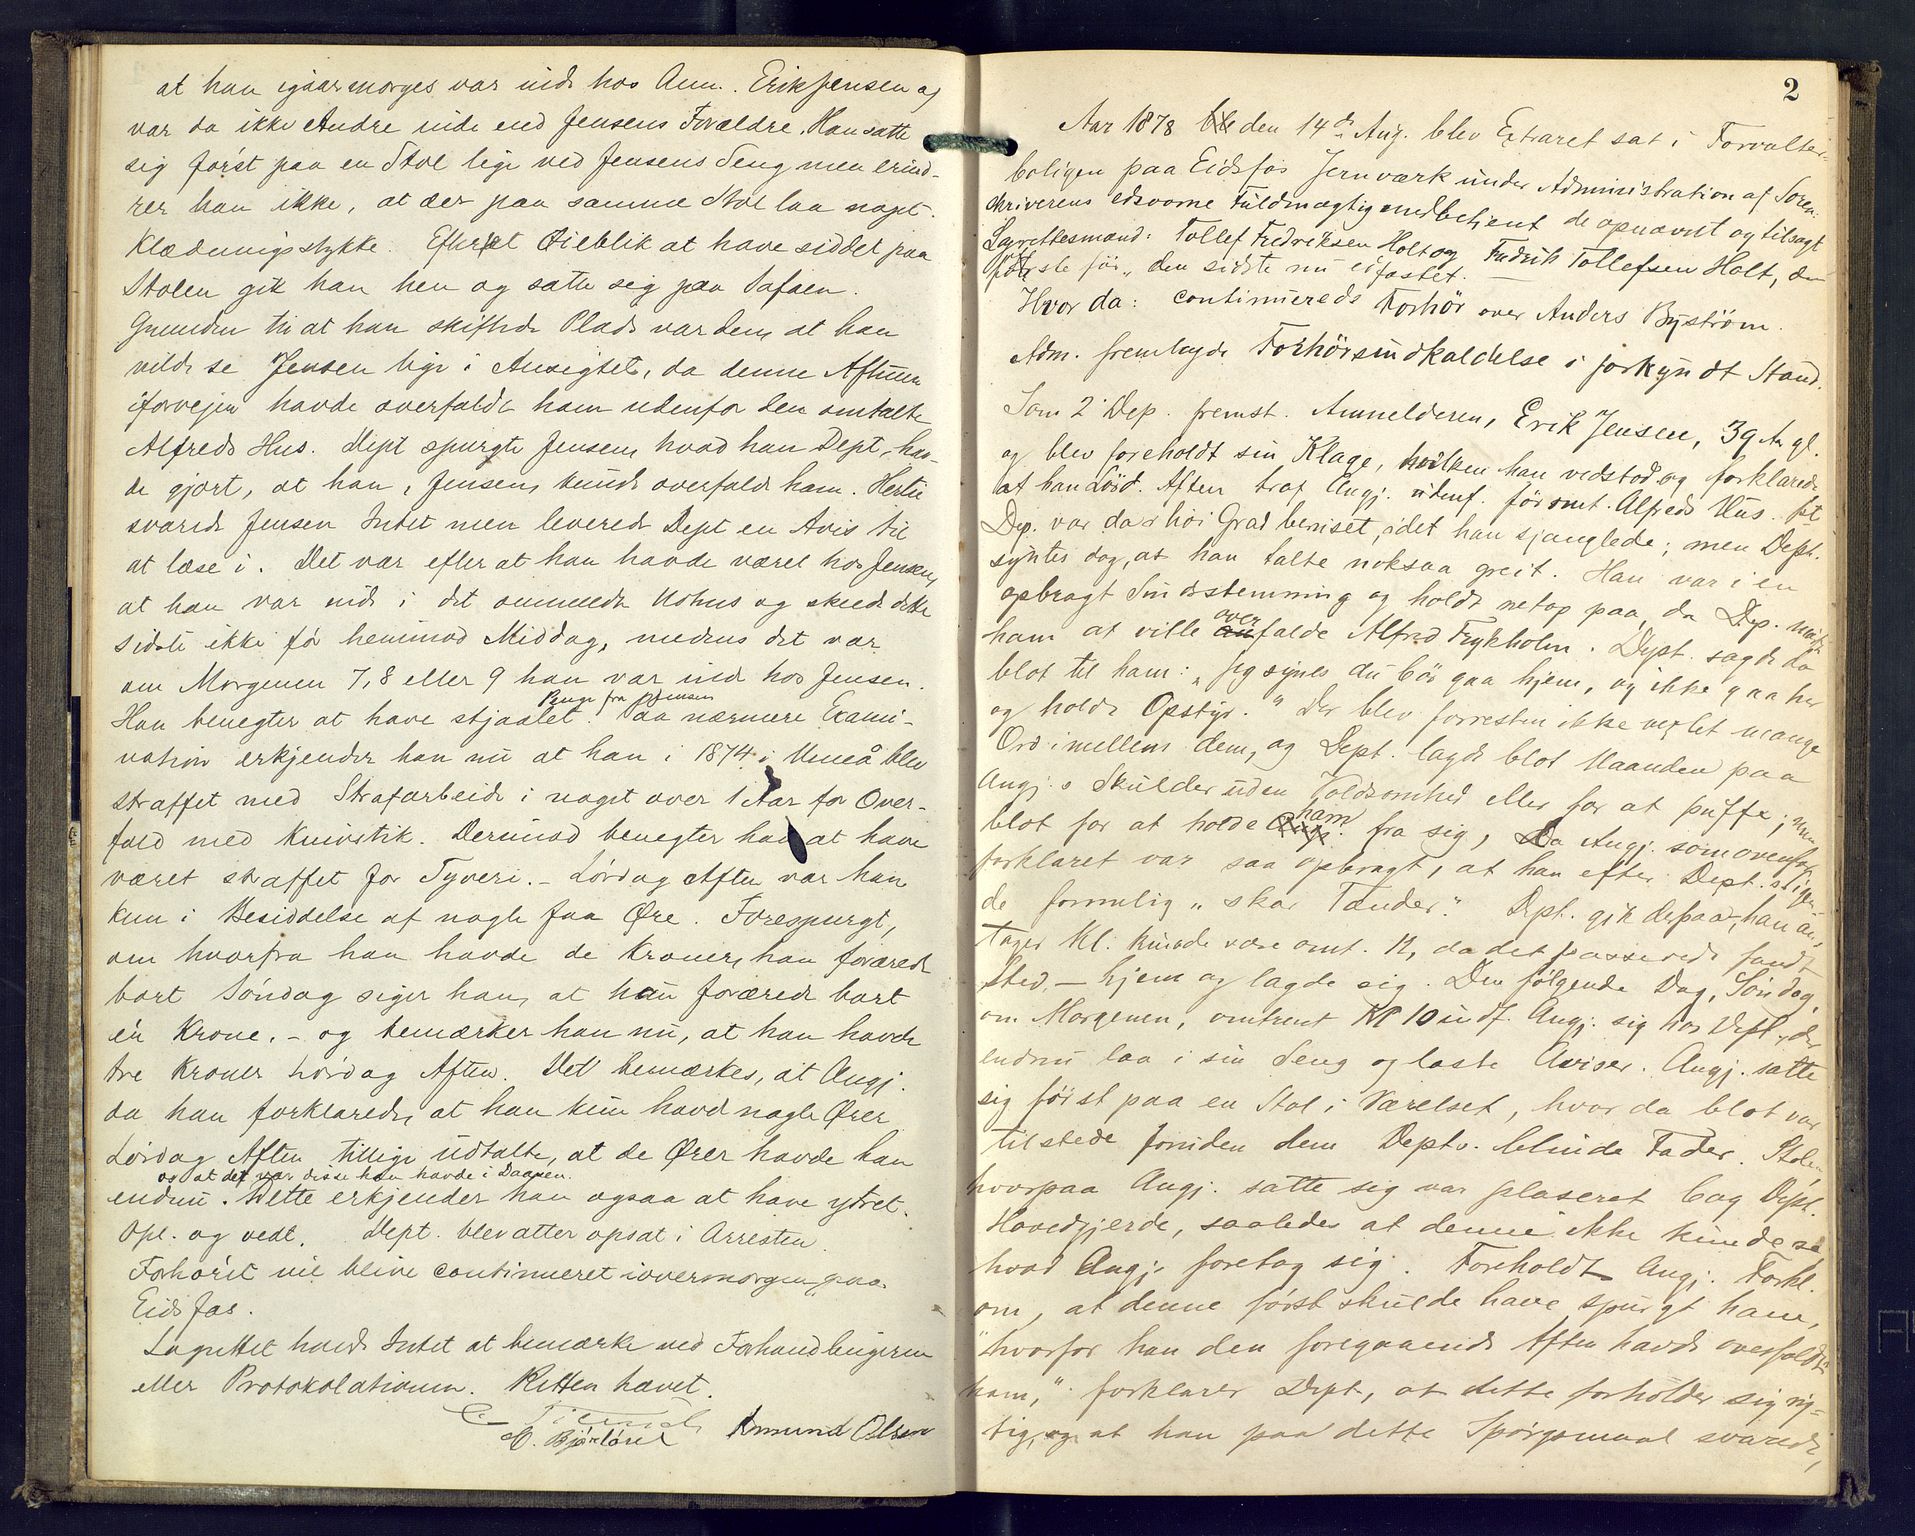 at han igaarmorges var inde hos Anm. Erik Jensen og
var da ikke Andre inde end Jensens Forældre. Han satte
sig først paa en Stol lige ved Jensens Seng men erind-
rer han ikke, at der paa samme Stol laa noget
Klædningsstykke. Efter et Øieblik at have siddet paa
Stolen gik han hen og satte sig paa Sofaen.
Grunden til at han skiftede Plads var den, at han
vilde se Jensen lige i Ansigtet, da denne Aftenen
iforveien havde overfaldt ham udenfor den omtalte
Alfreds Hus. Dept spurgte Jensen, hvad han Dept, hav-
de gjort, at han, Jensen, kunde overfalde ham. Hertil
svarede Jensen Intet men leverede Dept en Avis til
at læse i. Det var efter at han havde været hos Jensen,
at han var inde i det anmeldte Udhus og skede dette
sidste ikke før henimod Middag, medens det var
om Morgenen 7, 8 eller 9 han var ind hos Jensen.
Penge fra Jensen
Han benegter at have stjaalet. Paa nærmere Exami-
nation erkjender han nu at han i 1874 i Umeå blev
straffet med Strafarbeide i noget over 1 Aar for Over-
fald med Knivstik. Derimod benegter han at have
været straffet for Tyveri. - Lørdag Aften var han
kun i Besiddelse af nogle faa Øre. Forespurgt,
om hvorfra han havde de Kroner, han forærede
bort Søndag siger han, at han forærede bort
én Krone. - og bemærker han nu, at han havde
tre Kroner Lørdag Aften. Det bemærkes, at Angj.
da han forklarede, at han kun havde nogle Ører
Lørdag Aften tillige udtalte, at de Ører havde han
og at det var disse han havde i Daasen.
endnu. Dette erkjender han ogsaa at have ytret.
Opl. og vedt. Dept. blev atter opsat i Arresten.
Forhøret vil blive continueret iovermorgen paa
Eidsfos.
Lagrettet havde Intet at bemærke ved Forhandlingerne
eller Protokolationen. Retten hævet.
Amund Olsen
2
Aar 1878 den 14de Aug. blev Extraret sat i Forvalter-
boligen paa Eidsfos Jernværk under Administration af Soren-
skriverens edsvorne Fuldmægtig med betjent de opnævnt og tilsagt
Lagrettesmænd: Tollef Fredriksen Holt og Fredrik Tollefsen Holt, den
første før, den sidste nu edfæstet.
Hvor da: continueredes Forhør over Anders Byström.
Adm. fremlagde Forhørsindkaldelse i forkyndt Stand.
Som 2 Dep. fremst. Anmelderen, Erik Jensen, 39 Aar gl.
og blev foreholdt sin Klage, hvilken han vedstod og forklarede
at han Lørd. Aften traf Angj. udenf. føromt. Alfreds Hus.
Dep. var da i høi Grad beruset, idet han sjanglede; men Dept.
syntes dog, at han talte noksaa greit. Han var i en
opbragt Sindsstemning og holdt netop paa, da Dep. mødte
over
ham at ville falde Alfred Frykholm. Dept. sagde da
blot til ham: „Jeg synes du bør gaa hjem, og ikke gaa her
og holde Opstyr." Der blev forresten ikke vexlet mange
Ord imellem dem, og Dept. lagde blot Haanden paa
Angj.s Skulder uden Voldsomhed eller for at puffe; men
ham
blot for at holde fra sig, Da Angj. som ovenfor
forklaret var saa opbragt, at han efter Dept. sigen-
de formelig „skar Tænder". Dept. gik derpaa, han an-
tager Kl. kunde være omt. 12, da det passerede fandt
Sted, - hjem og lagde sig. Den følgende Dag, Søndag,
om Morgenen, omtrent Kl 10 indf. Angj. sig hos Dept., der
endnu laa i sin Seng og læste Aviser. Angj. satte
sig først paa en Stol i Værelset, hvor da blot var
tilstede foruden dem Deptv. blinde Fader. Stolen
hvorpaa Angj. satte sig var placeret bag Dept.
Hovedgjerde, saaledes at denne ikke kunde se
hvad Angj. foretog sig. Foreholdt Angj. Forkl.
om, at denne først skulde have spurgt ham,
„hvorfor han den foregaaende Aften havde overfaldt
ham," forklarer Dept, at dette forholder sig rig-
tig, og at han paa dette Spørgsmaal svarede,